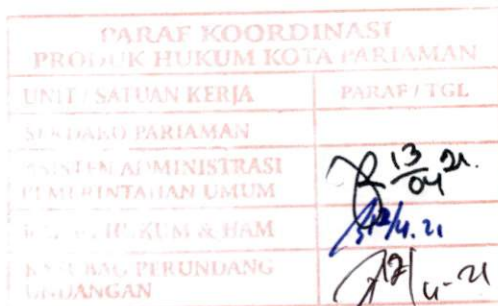 PARAF KOORDINASI
PRODUK HUKUM KOTA PARIAMAN
UNIT / SATUAN KERJA PARAF / TGL
SEKDAKO PARIAMAN
ASISTEN ADMINISTRASI
PEMERINTAHAN UMUM
13/04 21.
HUKUM & HAM
12/4.21
KASUBBAG PERUNDANG
UNDANGAN
12/4-21